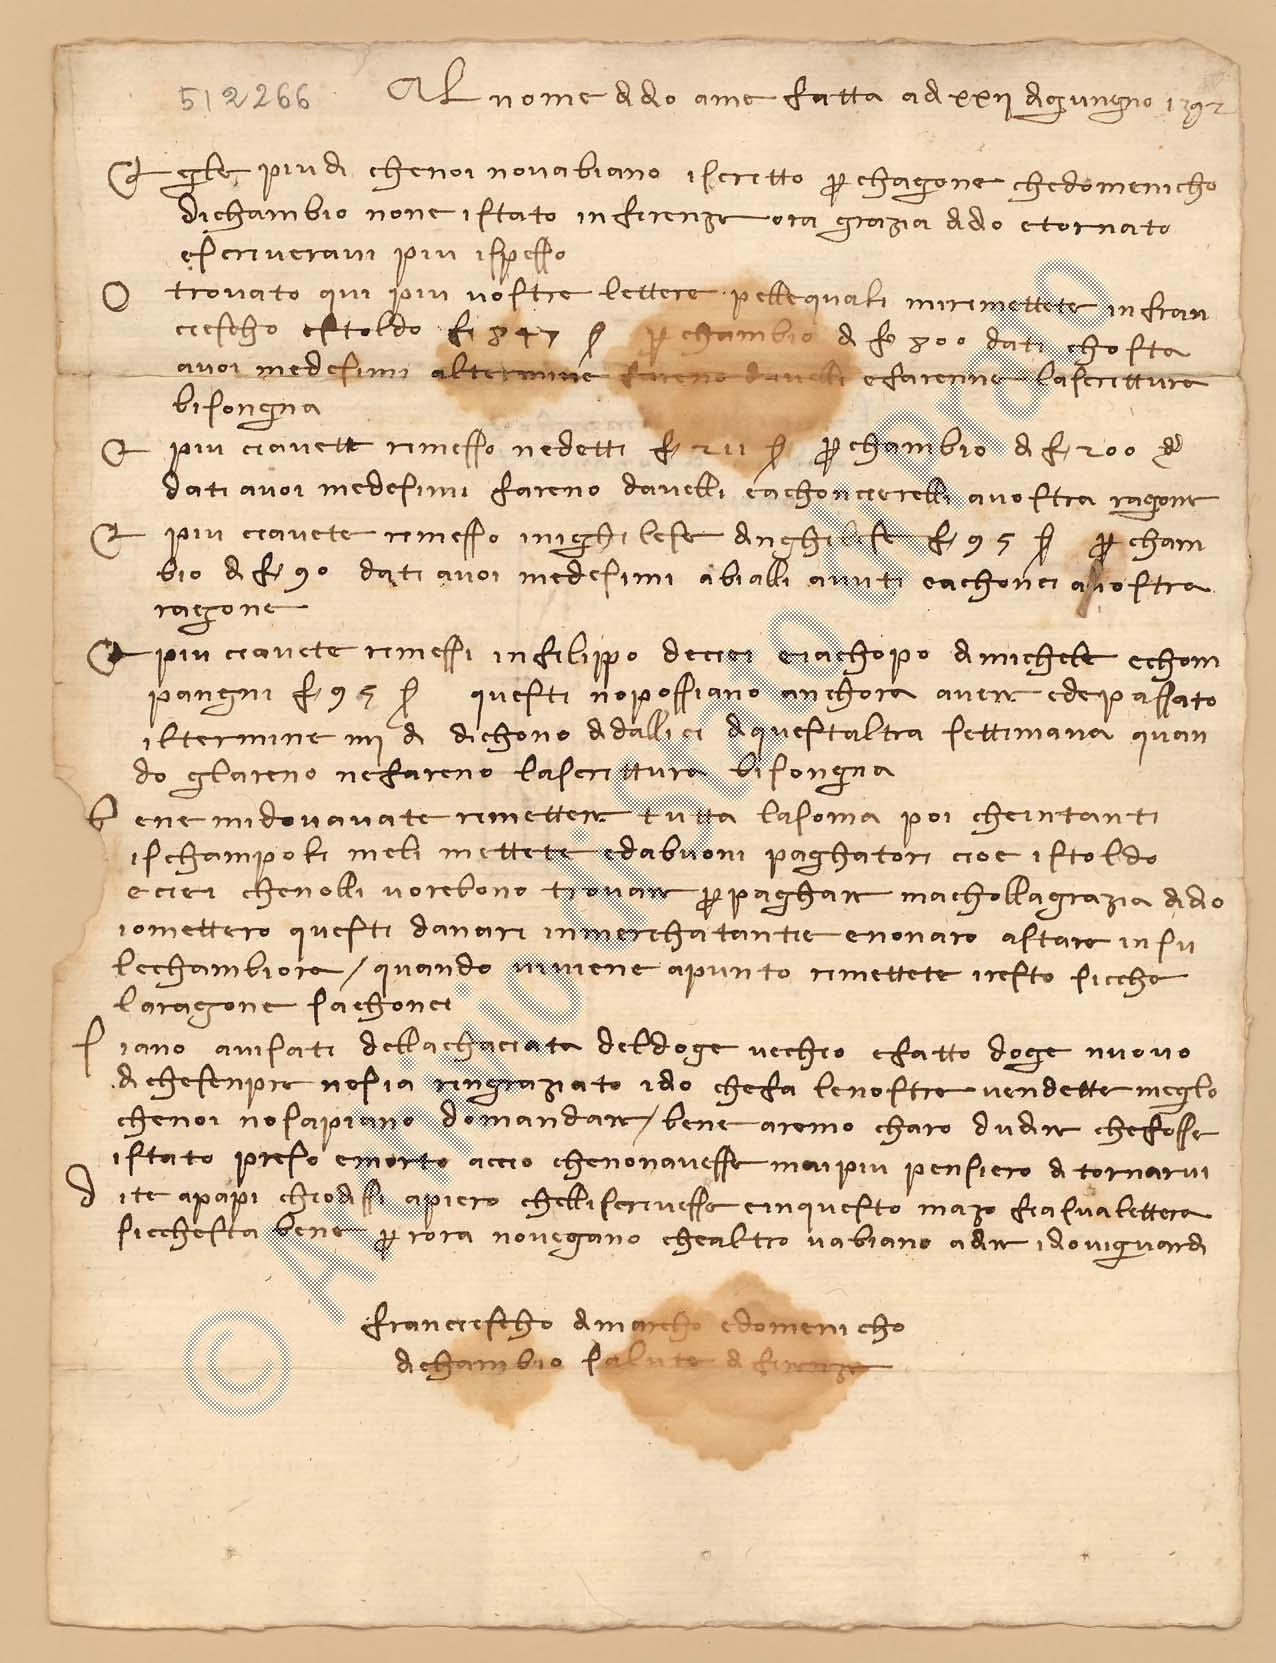 512266
Al nome d do ame fatta ad xxij di gungno 1392
E gle piu dì che noi novabiano iscritto p chagone che domenicho
di chambio none istato in firenze ora grazia d do e tornato
e scriveravi piu ispesso
O trovato qui piu vostre lettere pelle quali mi rimettete in fran
ciescho e stoldo f 847 s p chambio di f 800 dati chosta
a voi medesimi al termine fareno d avelli e farenne la scrittura
bisongna
E piu ci avette rimesso nedetti f 211 s p chambio di f 200 d
dati a voi medesimi fareno d avelli e achoncierelli a vostra ragone
E piu ci avete rimesso in ighilese d inghilese f 95 s p cham
bio di f 90 dati a voi medesimi abialli avuti e achonci a vostra
ragone
E piu ci avete rimessi in filippo de cieri e iachopo di michele e chom
pangni f 95 s questi no possiano anchora avere ed e passato
il termine iiij dì dichono d dallici di quest altra settimana quan
do gl areno ne fareno la scrittura bisongna
b ene mi dovavate rimettere tutta la soma poi che in tanti
ischampoli me li mettete e da buoni paghatori cioe istoldo
e cieri che nolli vorebono trovare p paghare ma cholla grazia d do
io mettero questi danari in merchatantie e non aro a stare in su
le chambiora / quando vi viene apunto rimettete i resto sicche
la ragone s achonci
s iano avisati della chaciata del doge vechio e fatto doge nuovo
di che senpre ne sia ringraziato ido che fa le nostre vendette meglo
che noi no sapiano domandare / bene aremo charo d udire che fosse
istato preso e morto accio che non avesse mai piu pensiero di tornarvi
d ite a papi ch io dissi a piero che lli scrivesse e in questo mazo fia sua lettera
sicche sta bene p rora no vegano che altro v abiano a dire ido vi guardi
franciescho di marcho e domenicho
di chambio salute di firenze
© Archivio di Stato di Prato